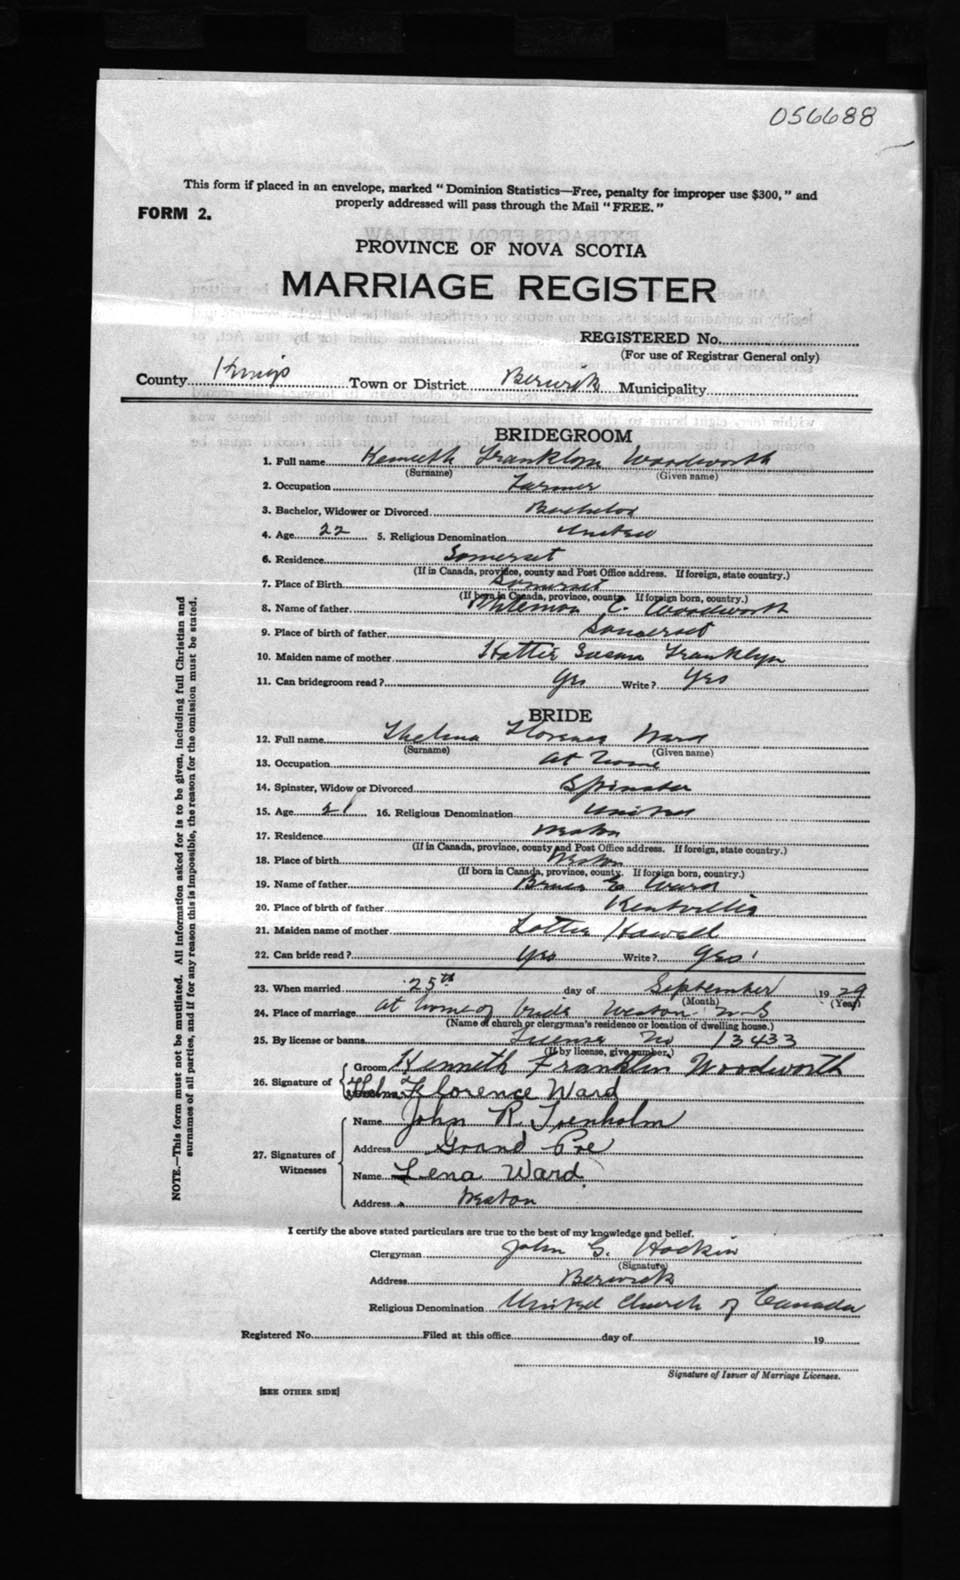 056688
This form if placed in an envelope, marked "Dominion Statistics—Free, penalty for improper use $300," and
properly addressed will pass through the Mail "FREE."
FORM 2.
PROVINCE OF NOVA SCOTIA
MARRIAGE REGISTER
REGISTERED No.
(For use of Registrar General only)
County Kings Town or District Berwick Municipality
BRIDEGROOM
1. Full name Kenneth Franklyn Woodworth
(Surname) (Given name)
2. Occupation Farmer
3. Bachelor, Widower or Divorced Bachelor
4. Age 22 5. Religious Denomination United
6. Residence Somerset
(If in Canada, province, county and Post Office address. If foreign, state country.)
7. Place of Birth Somerset
(If born in Canada, province, county. If foreign born, country.)
8. Name of father C. Woodworth
9. Place of birth of father Somerset
10. Maiden name of mother Hattie Susan Franklyn
11. Can bridegroom read? Yes Write? Yes
BRIDE
12. Full name Thelma Florence Ward
(Surname) (Given name)
13. Occupation at home
14. Spinster, Widow or Divorced Spinster
15. Age 21 16. Religious Denomination United
17. Residence Weston
(If in Canada, province, county and Post Office address. If foreign, state country.)
18. Place of birth Weston
(If born in Canada, province, county. If foreign born, country.)
19. Name of father Bruce E Ward
20. Place of birth of father Kentville
21. Maiden name of mother Lottie
22. Can bride read? Yes Write? Yes
23. When married 25th day of September 1929
(Month) (Year)
24. Place of marriage at home of bride Weston N-S
(Name of church or clergyman's residence or location of dwelling house.)
25. By license or banns License No 13433
(If by license, give number.)
26. Signature of Groom Kenneth Franklin Woodworth
Florence Ward
27. Signatures of Witnesses
Name John R. Trenholm
Address Grand Pre
Name Lena Ward.
Address Weston
I certify the above stated particulars are true to the best of my knowledge and belief.
Clergyman John G. Hockin
(Signature)
Address Berwick
Religious Denomination United Church of Canada
Registered No. Filed at this office day of 19
Signature of Issuer of Marriage Licenses.
[SEE OTHER SIDE]
NOTE.—This form must not be mutilated. All information asked for is to be given, including full Christian and
surnames of all parties, and if for any reason this is impossible, the reason for the omission must be stated.